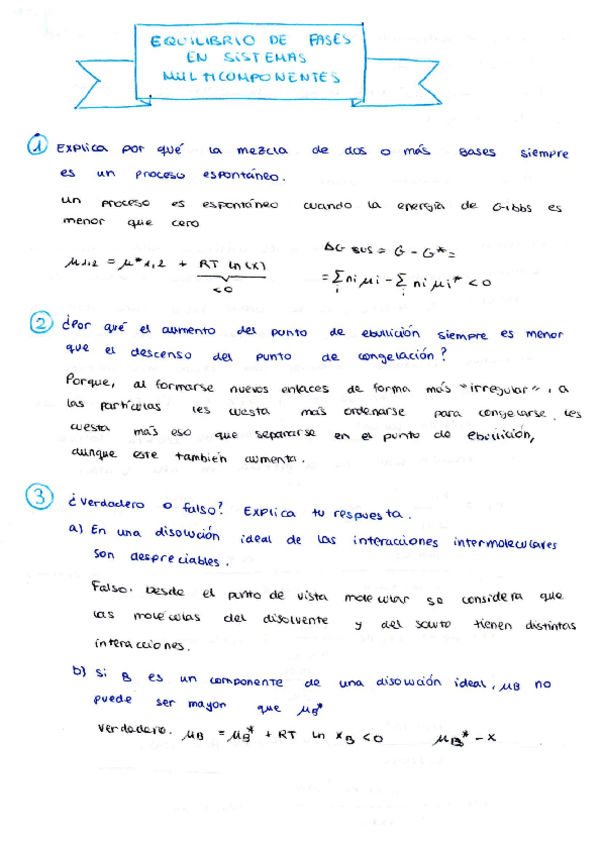 EQUILIBRIO DE FASES
EN SISTEMAS
MULTICOMPONENTES
1 Explica por qué la mezcla de dos o más gases siempre
es un proceso espontáneo.
Un proceso es espontáneo cuando la energía de Gibbs es
menor que cero
μ1,2 = μ*1,2 + RT ln(x)
<0
ΔG sus = G - G* =
= Σi ni μi - Σi ni μi* < 0
2 ¿Por qué el aumento del punto de ebullición siempre es menor
que el descenso del punto de congelación?
Porque, al formarse nuevos enlaces de forma más "irregular", a
las partículas les cuesta más ordenarse para congelarse. Les
cuesta más eso que separarse en el punto de ebullición,
aunque este también aumenta.
3 ¿Verdadero o falso? Explica tu respuesta.
a) En una disolución ideal de las interacciones intermoleculares
son despreciables.
Falso. Desde el punto de vista molecular se considera que
las moléculas del disolvente y del soluto tienen distintas
interacciones.
b) Si B es un componente de una disolución ideal, μB no
puede ser mayor que μB*
Verdadero. μB = μB* + RT ln xB < 0 μB* - x